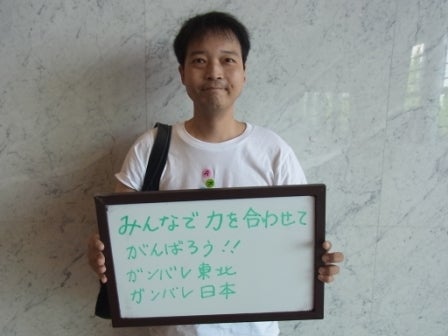 みんなで 力を合わせて
がんばろう!!
ガンバレ東北
ガンバレ日本